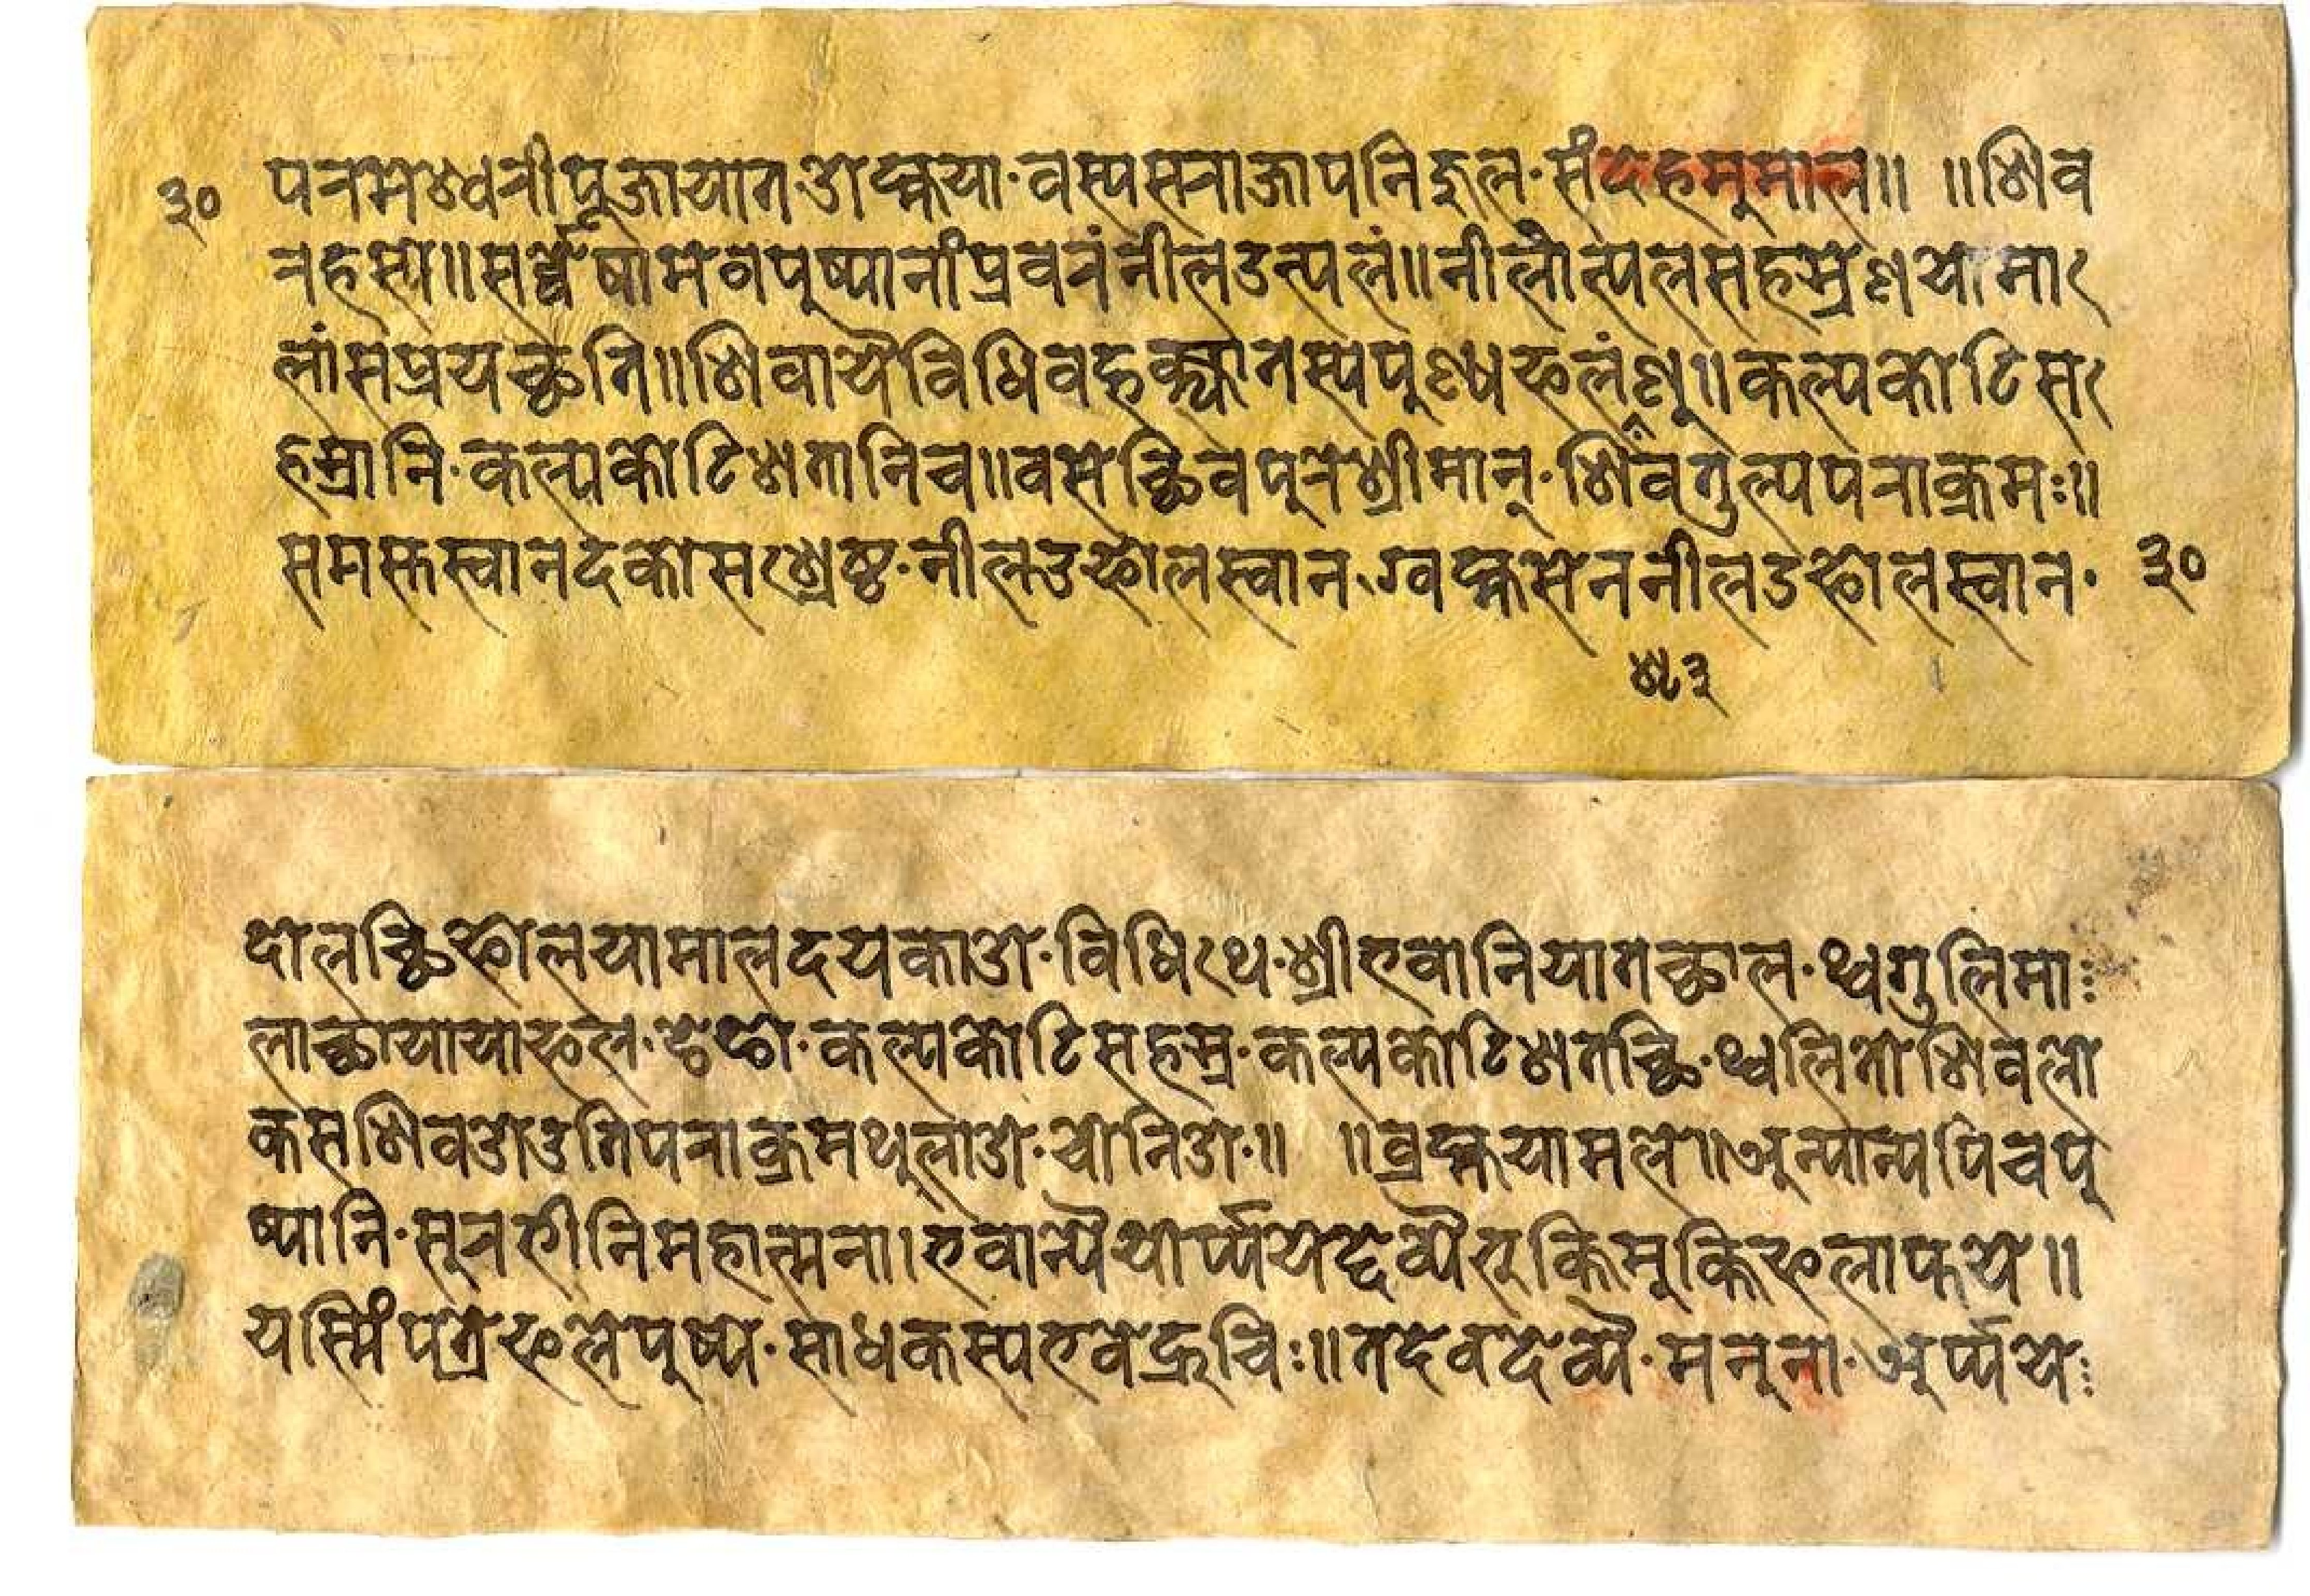 ३० परमेश्वरीपूजायात ओह्मया· वस्पसराजापनिजुल· संदेहमुमाल॥ ॥शिव
रहस्ये॥सर्व्वेषामेवपुष्पानांप्रवरंनीलउत्पलं॥नीलोत्पलसहस्रेणयोमा
लांसंप्रयच्छति॥शिवायैविधिवद्भक्त्यातस्यपुण्यफलंशृणु॥कल्पकोटिस
हस्रानि·कल्पकोटिशतानिच॥वसेच्छिवपुरेश्रीमान्·शिवतुल्यपराक्रमः॥
समस्तस्वानदकोसश्रेष्ठ·नीलउफोलस्वान·ग्वह्मसेननीलउफोलस्वान· ३०
दोलछिफोलयामालदयकाओ·विधिथे·श्रीभवानियातछाल·थ्वगुलिमा
लाछायायाफल·ङेङो·कल्पकोटिसहस्र·कल्पकोटिशतछि·थ्वलितोशिवलो
कसशिवओउतिपराक्रमथुलाओ·चोनिओ·॥ ॥ब्रह्मयामले॥अन्यान्यपिचपु
ष्पानि·सुरभीनिमहात्मना।भवान्यैयोर्प्पयेद्देव्यैभुक्तिमुक्तिफलाप्तये॥
यस्मिंपत्रेफलेपुष्पे·साधकस्यभवेद्रुचिः॥तदेवदेव्यै·मनुना·अर्प्पये